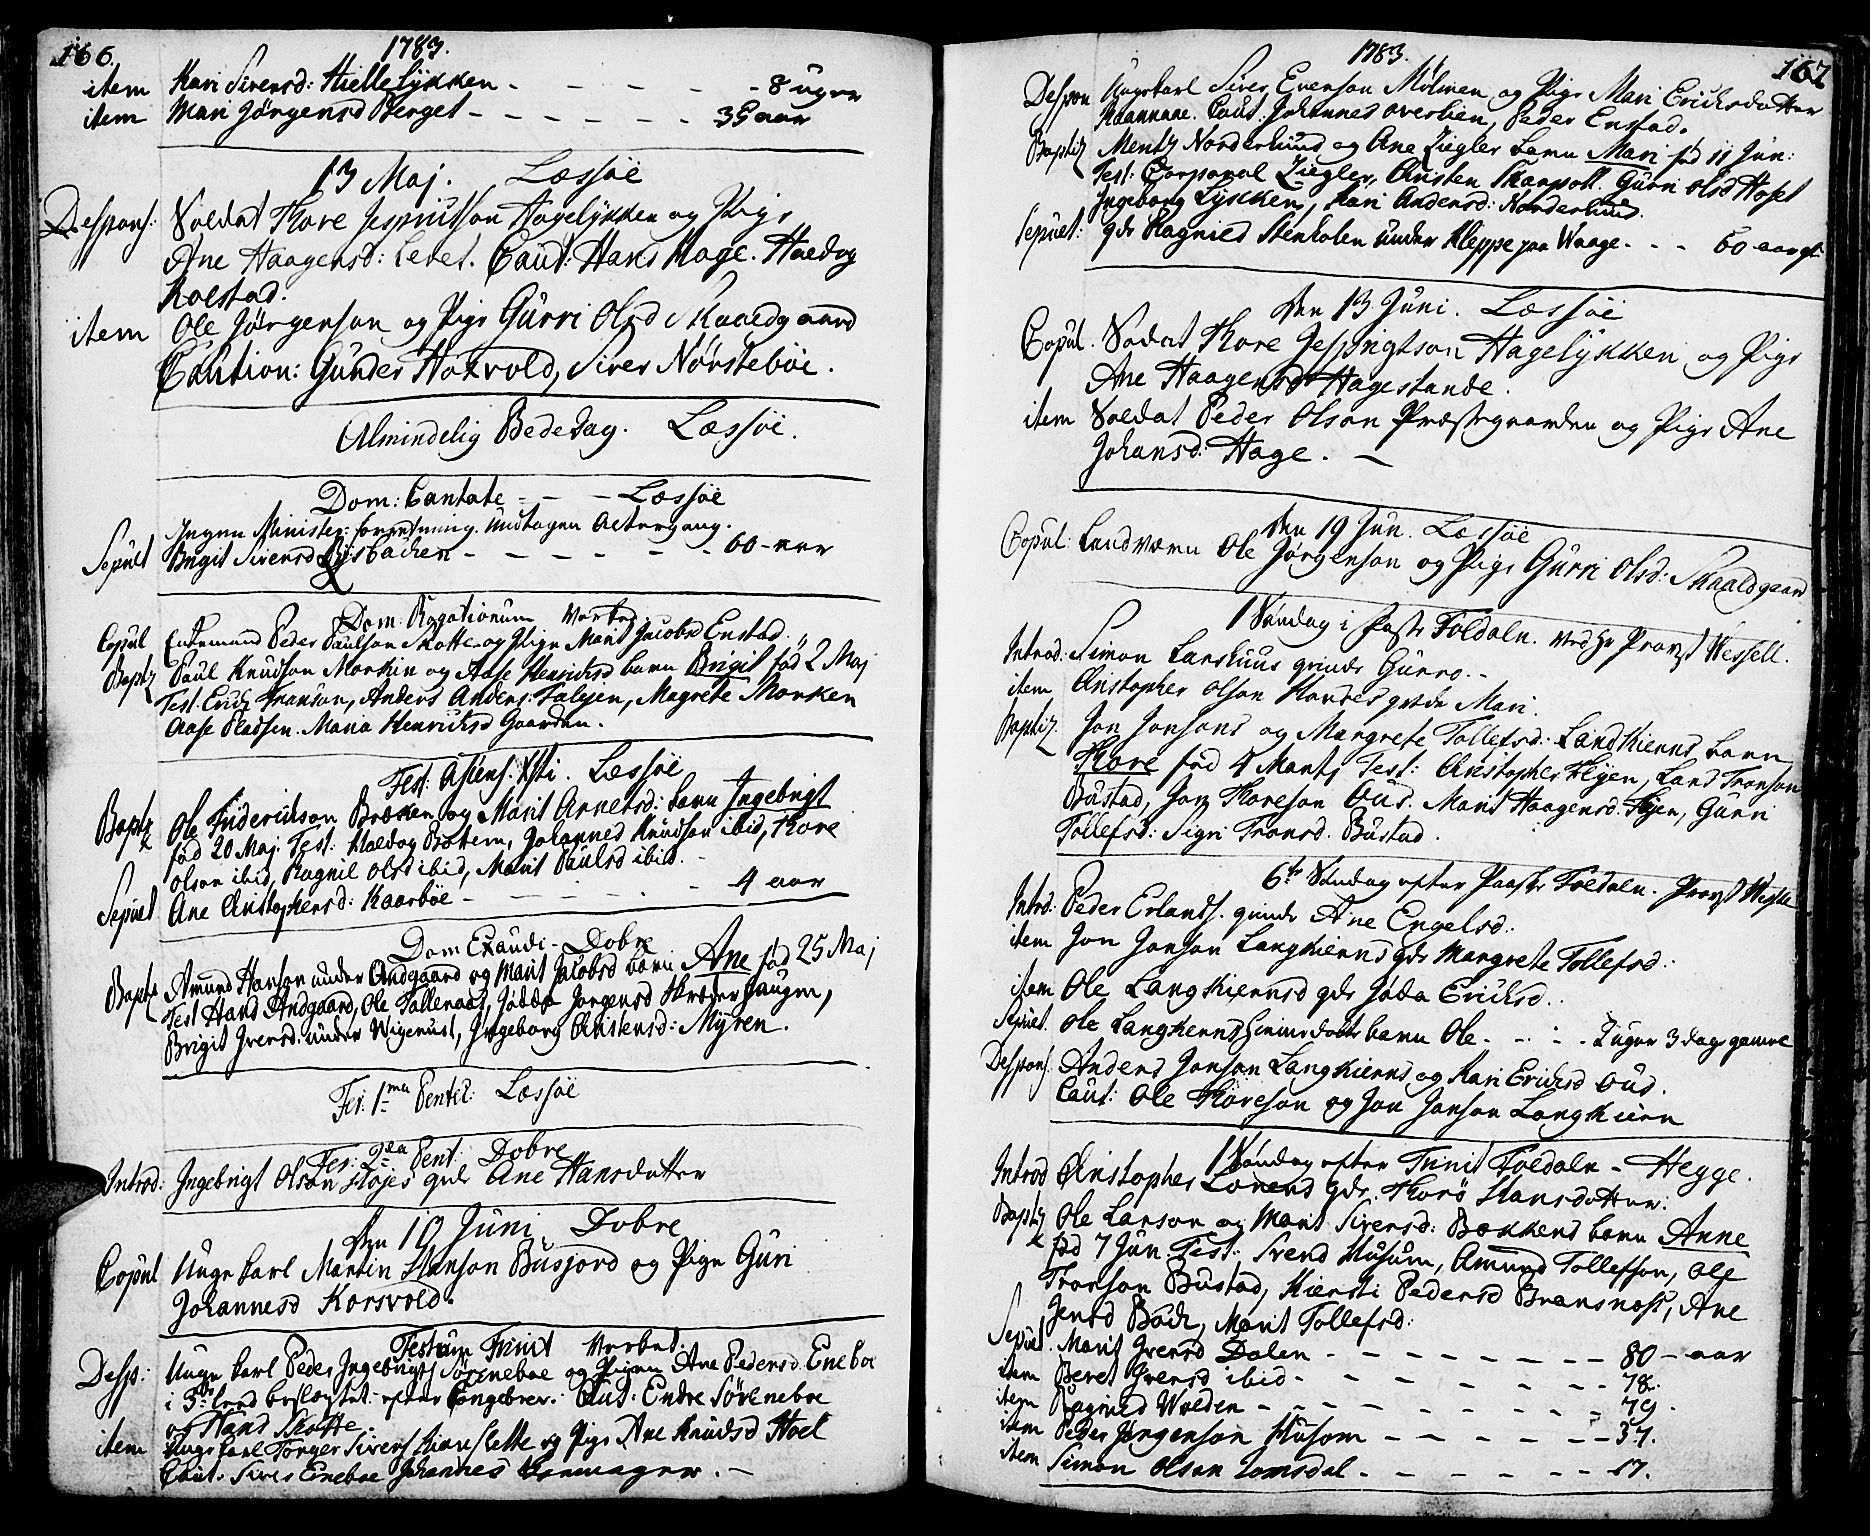 166.
1783.
item Kari Siversd: Hiellelykken - - - - - 8 uger
item Mari Jørgensd Berget - - - - - - 35 aar
13 Maj. Læssøe
Despons: Soldat Thore Jespritson Hagelykken og Pige
Ane Haagensd: Ledet. Caut: Hans Hage. Haldog
Rolstad.
item Ole Jørgenson og Pige Gurri Olsd Skaaldgaard
Caution: Gunder Holvold, Siver Nørstebøe.
Almindelig Bededag. Læssøe.
Dom: Cantate - - - Læssøe
Ingen Minister: forretning. undtagen Altergang.
Sepult Brigit Siversd Lysbacken - - - - - - 60 - aar
Dom: Rogationum
Copul Enkemand Peder Paulson Skotte og Pige Marit Jacobsd Enstad.
Baptz Paul Knudson Morken og Aase Henricksd barn Brigit fød 2 Maj
Test. Erich Transon, Anders Anders: Falgen, Magrete Morken
Aase Pladsen. Maria Henricksd Gaarden.
Fest: Ascens: Xsti. Læssøe
Baptz Ole Friderickson Brøken og Marit Arnetsd: barn Ingebrigt
fød 20 Maj. Test: Haldog Bottem, Johannes Knudson ibid, Thore
Olson ibid, Ragnil Olsd ibid, Marit Paulsd ibid.
Sepult Ane Christophersd: Kaarbøe - - - - - 4 aar
Dom Exaudi - Dobre
Baptz Amund Hanson under Andgaard og Marit Jacobsd barn Ane fød 25 Maj
Test Hans Andgaard, Ole Talleraas, Jødda Jørgensd Skreder Haugen,
Brigit Iversd: under Wigerust, Ingeborg Christensd: Myren.
Fer: 1ma Pentec: Læssøe
Fer: 2da Pent: Dobre
Introd: Ingebrigt Olson Kløjes qvde Ane Hansdatter
Den 10 Juni Dobre
Copul Unge Karl Martin Hanson Busjord og Pige Guri
Johannesd Korsvold.
Festum Trinit
Desp: Unge Karl Peder Ingebrigts Sørenebøe og Pigen Ane Pedersd Eneboe
i 3de Leed beslægtet efter Kongebrev. Caut: Endre Sørenebøe
og Hans Skotte
item Unge Karl Tonger Sivers Lianslette og Pige Ane Knudsd Hoel
Caut: Siver Eneboe Johannes
1783.
167
Despon Ungekarl Siver Evenson Mølmen og Pige Mari Ericksdatter
Caut: Johannes Overlien, Peder Enstad.
Baptiz Mentz Norderhuus og Ane Ziegler barn Mari fød 11 Jun:
Test: Corporal Ziegler, Christen Skarpoll. Gurri Olsd Hoset
Ingeborg Lykken, Kari Andersd: Norderhuus.
Sepult: qde Ragnild Stenholen under Kleppe paa Waage - - - 60 aar gl:
Den 13 Juni. Læssøe
Copul. Sodat Thore Jespingtson Hagelykken og Pige
Ane Haagensd Hagestande.
item Soldat Peder Olson Præstegaarden og Pige Ane
Johansd: Hage. -
Den 19 Jun. Læssøe
Copul: Landværn Ole Jørgenson og Pige Gurri Olsd: Skaaldgaard
1 Søndag i Paske Foldaln. ved Hr Provst Wessell.
Introd: Simon Larshuus qvinde Gunro. -
item Christopher Olson qvde Mari.
Baptiz. Jon Jonsons og Margrete Tollefsd: Landkienns barn
Thore fød 4 Martj Test: Christopher Flyen, Land Tronson
Bustad, Jon Thoreson Vus. Marit Haagensd. Flyen, Gurri
Tollefsd: Sigri Tronsd. Bustad.
6te Søndag efter Paaske Foldaln. Provst Weslle
Introd: Peder Erlands. qvinde Ane Engelsd:
item Jon Jonson Langkienns qde Margrete Tollefsd:
item Ole Langkiennsd qde Jøda Ericksd:
Sepult. Ole Langkenns barn Ole - - - - 2 uger 3 dage gamle
Despons. Anders Jonson Langkienns og Kari Ericksd Vus.
Caut: Ole Thoreson og Jon Jonson Langkienn
1 Søndag efter Trinit Foldaln - Hegge.
Introd Christopher Lorends qde. Thorø Hansdatter:
Baptz Ole Larson og Marit Siversd: Bækkens barn Anne
fød 7 Jun. Test: Svend Husum, Amund Tollefson, Ole
Tronson Bustad, Kiersti Pedersd Brænsnøst, Ane
Jensd Bøch, Marit Tollefsd:
Sepult. Marit Iversd Dalen - - - - - - - - 80 - aar
item Beret Iversd ibid - - - - - - - - 78.
item Ragnild Wolden - - - - - - - - 79.
item Peder Jørgenson Husom - - - - - - - 37.
item Simon Olson Lomsdal - - - - - - 17.